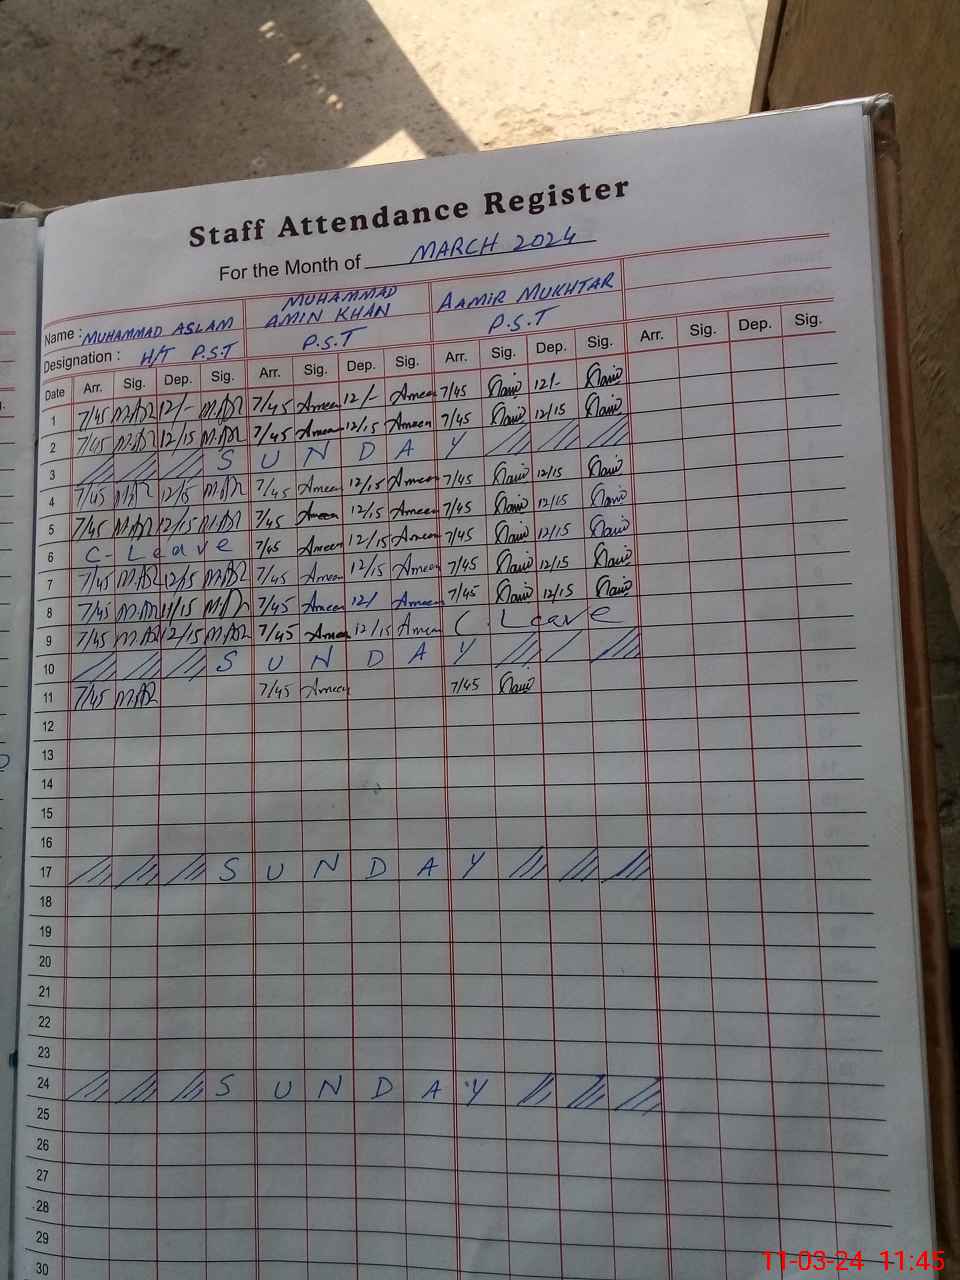 Staff Attendance Register
For the Month of MARCH 2024
Name : MUHAMMAD ASLAM MUHAMMAD AMIN KHAN AAMIR MUKHTAR
Designation : H/T P.S.T P.S.T P.S.T
Date Arr. Sig. Dep. Sig. Arr. Sig. Dep. Sig. Arr. Sig. Dep. Sig. Arr. Sig. Dep. Sig.
1 7/45 12/- 7/45 Ameen 12/- Ameen 7/45 12/-
2 7/45 12/15 7/45 Ameen 12/15 Ameen 7/45 12/15
3 S U N D A Y
4 7/45 12/15 7/45 Ameen 12/15 Ameen 7/45 12/15
5 7/45 12/15 7/45 Ameen 12/15 Ameen 7/45 12/15
6 C- Leave 7/45 Ameen 12/15 Ameen 7/45 12/15
7 7/45 12/15 7/45 Ameen 12/15 Ameen 7/45 12/15
8 7/45 7/45 Ameen 12/ Ameen 7/45 12/15
9 7/45 12/15 7/45 Ameen 12/15 Ameen C. Leave
10 S U N D A Y
11 7/45 7/45 Ameen 7/45
12
13
14
15
16
17 S U N D A Y
18
19
20
21
22
23
24 S U N D A Y
25
26
27
28
29
30
11-03-24 11:45